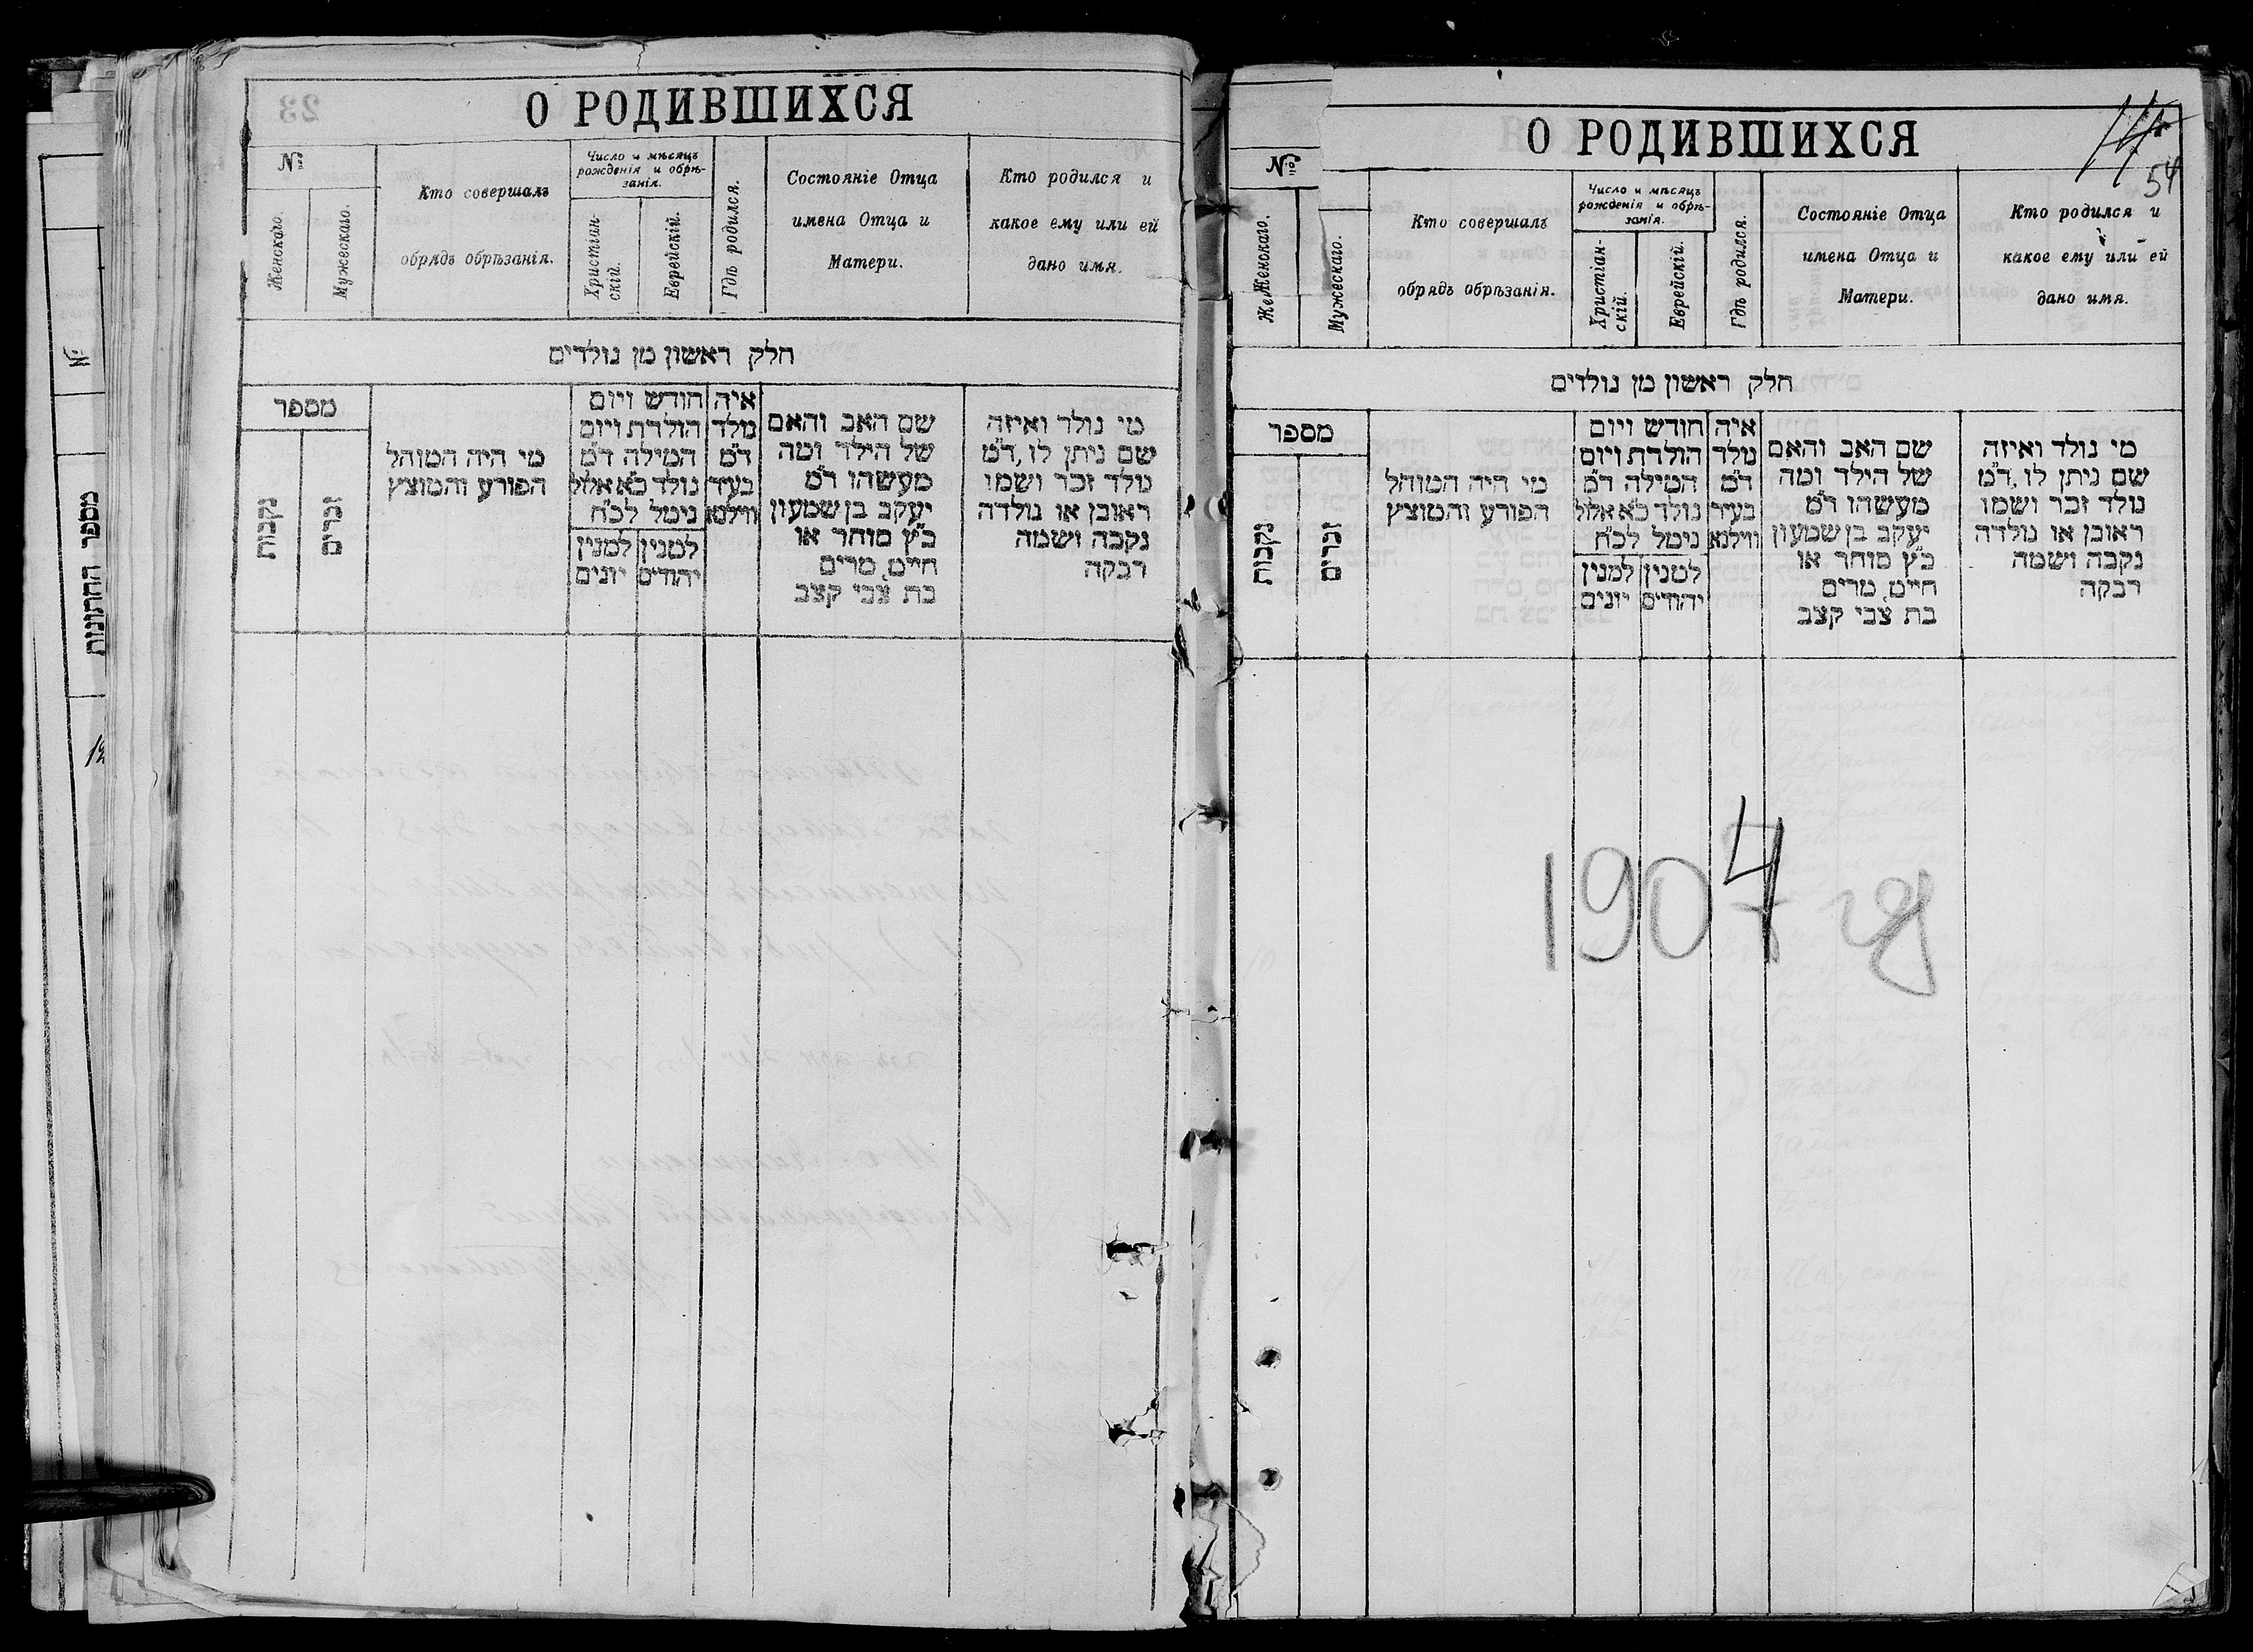 О РОДИВШИХСЯ
№
Женскаго.
Мужескаго.
Кто совершалъ
обрядъ обрѣзанія.
Число и мѣсяцъ
рожденія и обрѣ-
занія.
Христіан-
скій.
Еврейскій.
Гдѣ родился.
Состояніе Отца
имена Отца и
Матери.
Кто родился и
какое ему или ей
дано имя.
חלק ראשון מן נולדים
מספר
נקבות
זכרים
מי היה המוהל
הפורע והמוצץ
חודש ויום
הולדת ויום
המילה ד״מ
נולד כ״א אלול
נימל לכ״ח
למנין
יהודים
למנין
יונים
איה
נולד
ד״מ
בעיר
ווילנא
שם האב והאם
של הילד ומה
מעשהו ד״מ
יעקב בן שמעון
כ״ץ סוחר או
חייט, מרים
בת צבי קצב
מי נולד ואיזה
שם ניתן לו, ד״מ
נולד זכר ושמו
ראובן או נולדה
נקבה ושמה
רבקה
№
מספר החתונות
О РОДИВШИХСЯ
54
№
Женскаго.
Же
Мужескаго.
Кто совершалъ
обрядъ обрѣзанія.
Число и мѣсяцъ
рожденія и обрѣ-
занія.
Христіан-
скій.
Еврейскій.
Гдѣ родился.
Состояніе Отца
имена Отца и
Матери.
Кто родился и
какое ему или ей
дано имя.
חלק ראשון מן נולדים
מספר
נקבות
זכרים
מי היה המוהל
הפורע והמוצץ
חודש ויום
הולדת ויום
המילה ד״מ
נולד כ״א אלול
נימל לכ״ח
למנין
יהודים
למנין
יונים
איה
נולד
ד״מ
בעיר
ווילנא
שם האב והאם
של הילד ומה
מעשהו ד״מ
יעקב בן שמעון
כ״ץ סוחר או
חייט, מרים
בת צבי קצב
מי נולד ואיזה
שם ניתן לו, ד״מ
נולד זכר ושמו
ראובן או נולדה
נקבה ושמה
רבקה
1904